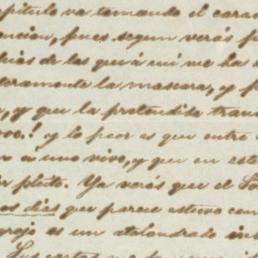 pitulo va tomando el cara
encion, pues segun verás p
bias de las que á mi me ha d
toramente la mascara, y p
, y que la pretendida tran
oo! y lo peor es que entre
a uno vivo, y que en este
pleto. Ya verás que el
os dias que parece estuvo con
rojo es un atolondrado in